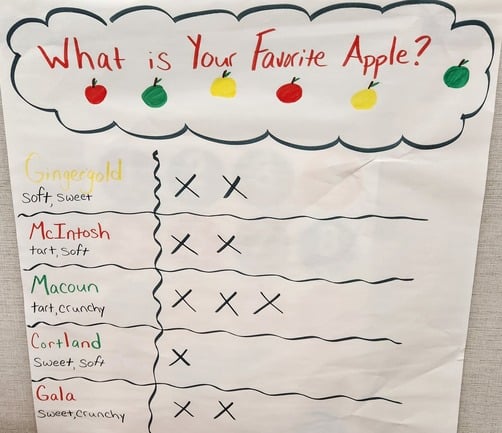 What is Your Favorite Apple?
Gingergold
Soft, sweet
X X
McIntosh
tart, soft
X X
Macoun
tart, crunchy
X X X
Cortland
Sweet, soft
X
Gala
Sweet, crunchy
X X